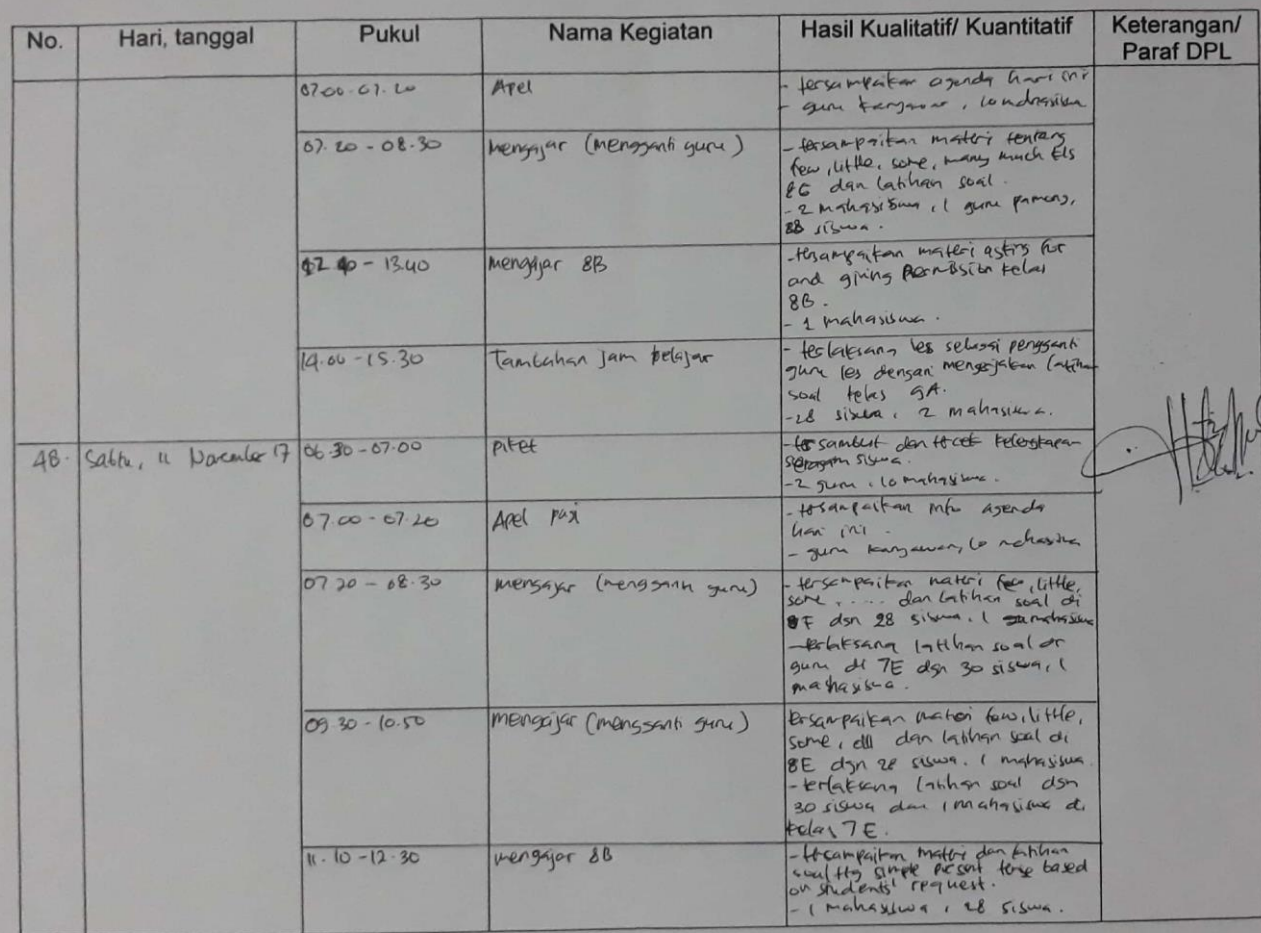 No. Hari, tanggal Pukul Nama Kegiatan Hasil Kualitatif/ Kuantitatif Keterangan/
Paraf DPL
07.00-07.20 Apel - tersampaikan agenda hari ini
- guru karyawan, 10 mahasiswa
07.20 - 08.30 Mengajar (mengganti guru) - tersampaikan materi tentang
few, little, some, many much
dan latihan soal.
- 2 mahasiswa, 1 guru pamong,
28 siswa.
- 13.40 Mengajar 8B - tersampaikan materi asking for
and giving permission kelas
8B.
- 1 mahasiswa.
14.00 - 15.30 Tambahan jam belajar - terlaksana les sebagai pengganti
guru les dengan mengerjakan latihan
soal kelas 9A.
- 28 siswa, 2 mahasiswa.
48. Sabtu, 11 November 17 06.30 - 07.00 Piket - tersambut dan tercek kelengkapan
seragam siswa.
- 2 guru, 10 mahasiswa.
07.00 - 07.20 Apel pagi - tersampaikan info agenda
hari ini.
- guru karyawan, 10 mahasiswa
07.20 - 08.30 Mengajar (mengganti guru) - tersampaikan materi few, little,
some, ..... dan latihan soal di
8F dgn 28 siswa. 1 mahasiswa
- terlaksana latihan soal dr
guru di 7E dgn 30 siswa, 1
mahasiswa.
09.30 - 10.50 Mengajar (mengganti guru) tersampaikan materi few, little,
some, dll dan latihan soal di
8E dgn 28 siswa. 1 mahasiswa.
- terlaksana latihan soal dgn
30 siswa dan 1 mahasiswa di
kelas 7E.
11.10 - 12.30 Mengajar 8B - tersampaikan materi dan latihan
soal ttg simple present tense based
on students' request.
- 1 mahasiswa, 28 siswa.